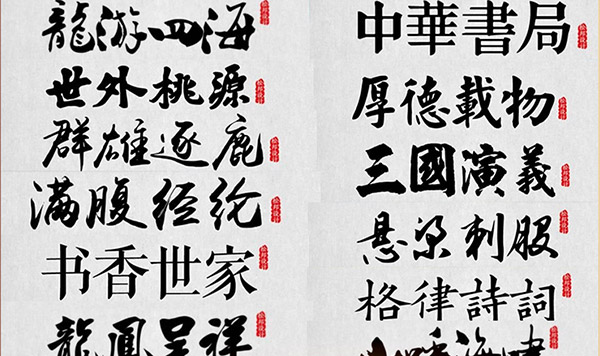 龍游四海
世外桃源
群雄逐鹿
满腹经纶
书香世家
龍鳳呈祥
中華書局
厚德載物
三國演義
悬梁刺股
格律詩詞